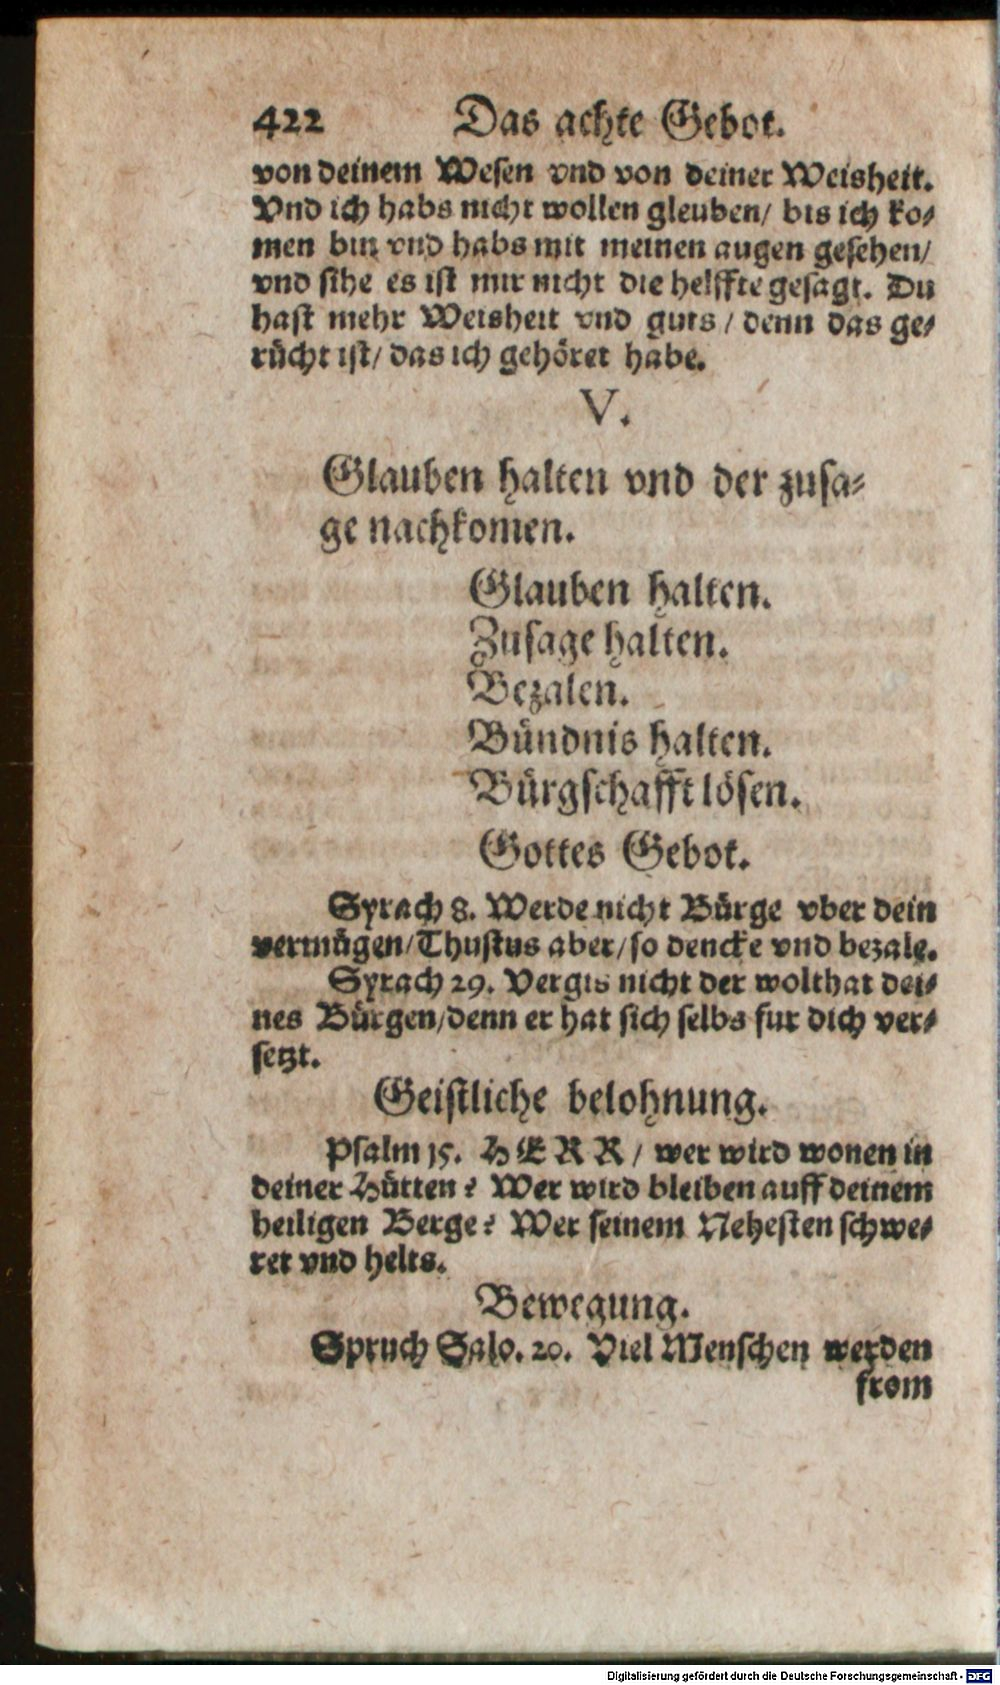 422 Das achte Gebot.
von deinem Wesen vnd von deiner Weisheit.
Vnd ich habs nicht wollen gleuben/ bis ich ko⸗
men bin vnd habs mit meinen augen gesehen/
vnd sihe es ist mir nicht die helffte gesagt. Du
hast mehr Weisheit vnd guts / denn das ge⸗
rücht ist/ das ich gehöret habe.
V.
Glauben halten vnd der zusa⸗
ge nachkomen.
Glauben halten.
Zusage halten.
Bezalen.
Bündnis halten.
Bürgschafft lösen.
Gottes Gebot.
Syrach 8. Werde nicht Bürge vber dein
vermügen/Thustus aber/so dencke vnd bezale.
Syrach 29. Vergis nicht der wolthat dei⸗
nes Bürgen/denn er hat sich selbs fur dich ver⸗
setzt.
Geistliche belohnung.
Psalm 15. HERR / wer wird wonen in
deiner Hütten? Wer wird bleiben auff deinem
heiligen Berge? Wer seinem Nehesten schwe⸗
ret vnd helts.
Bewegung.
Spruch Salo. 20. Viel Menschen werden
from
Digitalisierung gefördert durch die Deutsche Forschungsgemeinschaft - DFG